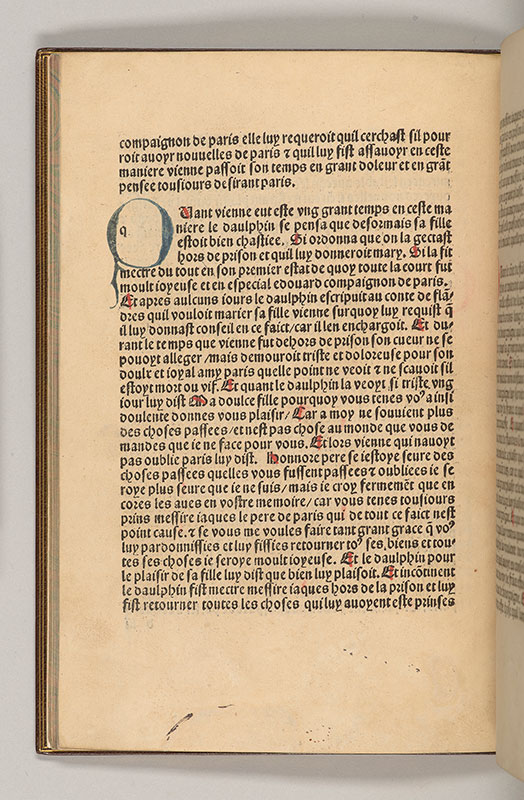 compaignon de paris elle luy requeroit quil cerchast sil pour
roit auoyr nouuelles de paris ⁊ quil luy fist assauoyr en ceste
maniere vienne passoit son temps en grant doleur et en grãt
pensee tousiours desirant paris.
q
Uant vienne eut este vng grant temps en ceste ma
niere le daulphin se pensa que desormais sa fille
estoit bien chastiee. Si ordonna que on la gectast
hors de prison et quil luy donneroit mary. Si la fit
mectre du tout en son premier estat de quoy toute la court fut
moult ioyeuse et en especial edouard compaignon de paris.
Et apres aulcuns iours le daulphin escripuit au conte de flã-
dres quil vouloit marier sa fille vienne surquoy luy requist q̃
il luy donnast conseil en ce faict/ car il len enchargoit. Et du-
rant le temps que vienne fut dehors de prison son cueur ne se
pouoyt alleger /mais demouroit triste et doloreuse pour son
doulx et loyal amy paris quelle point ne veoit ⁊ ne scauoit sil
estoyt mort ou vif. Et quant le daulphin la veoyt si triste vng
iour luy dist Ma doulce fille pourquoy vous tenes voꝰ ainsi
doulente donnes vous plaisir/ Car a moy ne souuient plus
des choses passees/ et nest pas chose au monde que vous de
mandes que ie ne face pour vous. Et lors vienne qui nauoyt
pas oublie paris luy dist. Honnore pere se iestoye seure des
choses passees quelles vous fussent passees ⁊ oubliees ie se
roye plus seure que ie ne suis/ mais ie croy fermemẽt que en
cores les aues en vostre memoire/ car vous tenes tousiours
prins messire iaques le pere de paris qui de tout ce faict nest
point cause. ⁊ se vous me voules faire tant grant grace q̃ voꝰ
luy pardonnissies et luy fissies retourner toꝰ ses biens et tou-
tes ses choses ie seroye moult ioyeuse. Et le daulphin pour
le plaisir de sa fille luy dist que bien luy plaisoit. Et incõtinent
le daulphin fist mectre messire iaques hors de la prison et luy
fist retourner toutes les choses qui luy auoyent este prinses